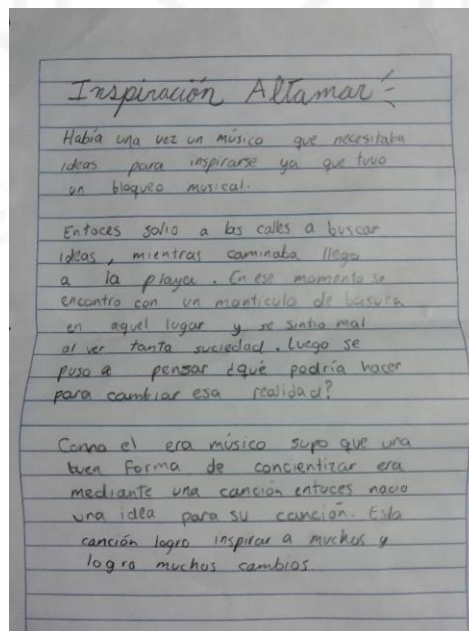 Inspiración Altamar
Había una vez un músico que necesitaba
ideas para inspirarse ya que tuvo
un bloqueo musical.
Entoces salio a las calles a buscar
ideas, mientras caminaba llego
a la playa. En ese momento se
encontro con un monticulo de basura
en aquel lugar y se sintio mal
al ver tanta suciedad. Luego se
puso a pensar ¿qué podría hacer
para cambiar esa realidad?
Como el era músico supo que una
buen forma de concientizar era
mediante una canción entoces nacio
una idea para su canción. Esta
canción logro inspirar a muchos y
logro muchos cambios.